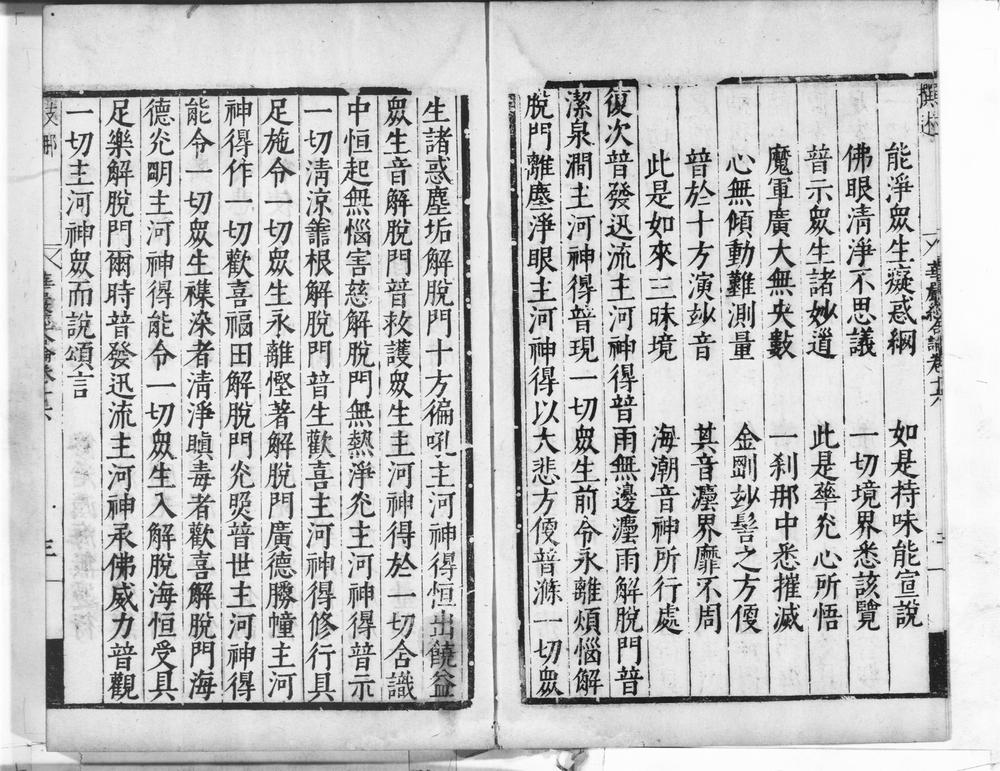 撰述
華嚴經合論卷十六
能淨眾生癡惑網　如是持味能宣說
佛眼清淨不思議　一切境界悉該覽
普示眾生諸妙道　此是華灮心所悟
魔軍廣大無央數　一剎那中悉摧滅
心無傾動難測量　金剛玅髻之方便
普於十方演玅音　其音灋界靡不周
此是如來三昧境　海潮音神所行處
復次普發迅流主河神得普雨無邊灋雨解脫門普
潔泉澗主河神得普現一切眾生前令永離煩惱解
脫門離塵淨眼主河神得以大悲方便普滌一切眾
生諸惑塵垢解脫門十方徧吼主河神得恒出饒益
眾生音解脫門普救護眾生主河神得於一切含識
中恒起無惱害慈解脫門無熱淨灮主河神得普示
一切清涼善根解脫門普生歡喜主河神得修行具
足施令一切眾生永離慳著解脫門廣德勝幢主河
神得作一切歡喜福田解脫門灮照普世主河神得
能令一切眾生襍染者清淨瞋毒者歡喜解脫門海
德灮明主河神得能令一切眾生入解脫海恒受具
足樂解脫門爾時普發迅流主河神承佛威力普觀
一切主河神眾而說頌言
支那
華嚴經合論卷十六
三